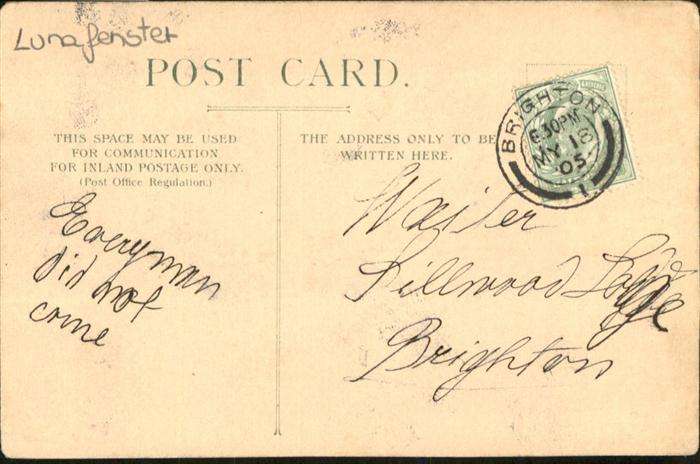 Lunafenster
POST CARD.
THIS SPACE MAY BE USED
FOR COMMUNICATION
FOR INLAND POSTAGE ONLY.
(Post Office Regulation.)
THE ADDRESS ONLY TO BE
WRITTEN HERE.
BRIGHTON
6.30PM
MY 18
05
1
Everyman
did not
come
Waiter
Sillwood Lodge
Brighton